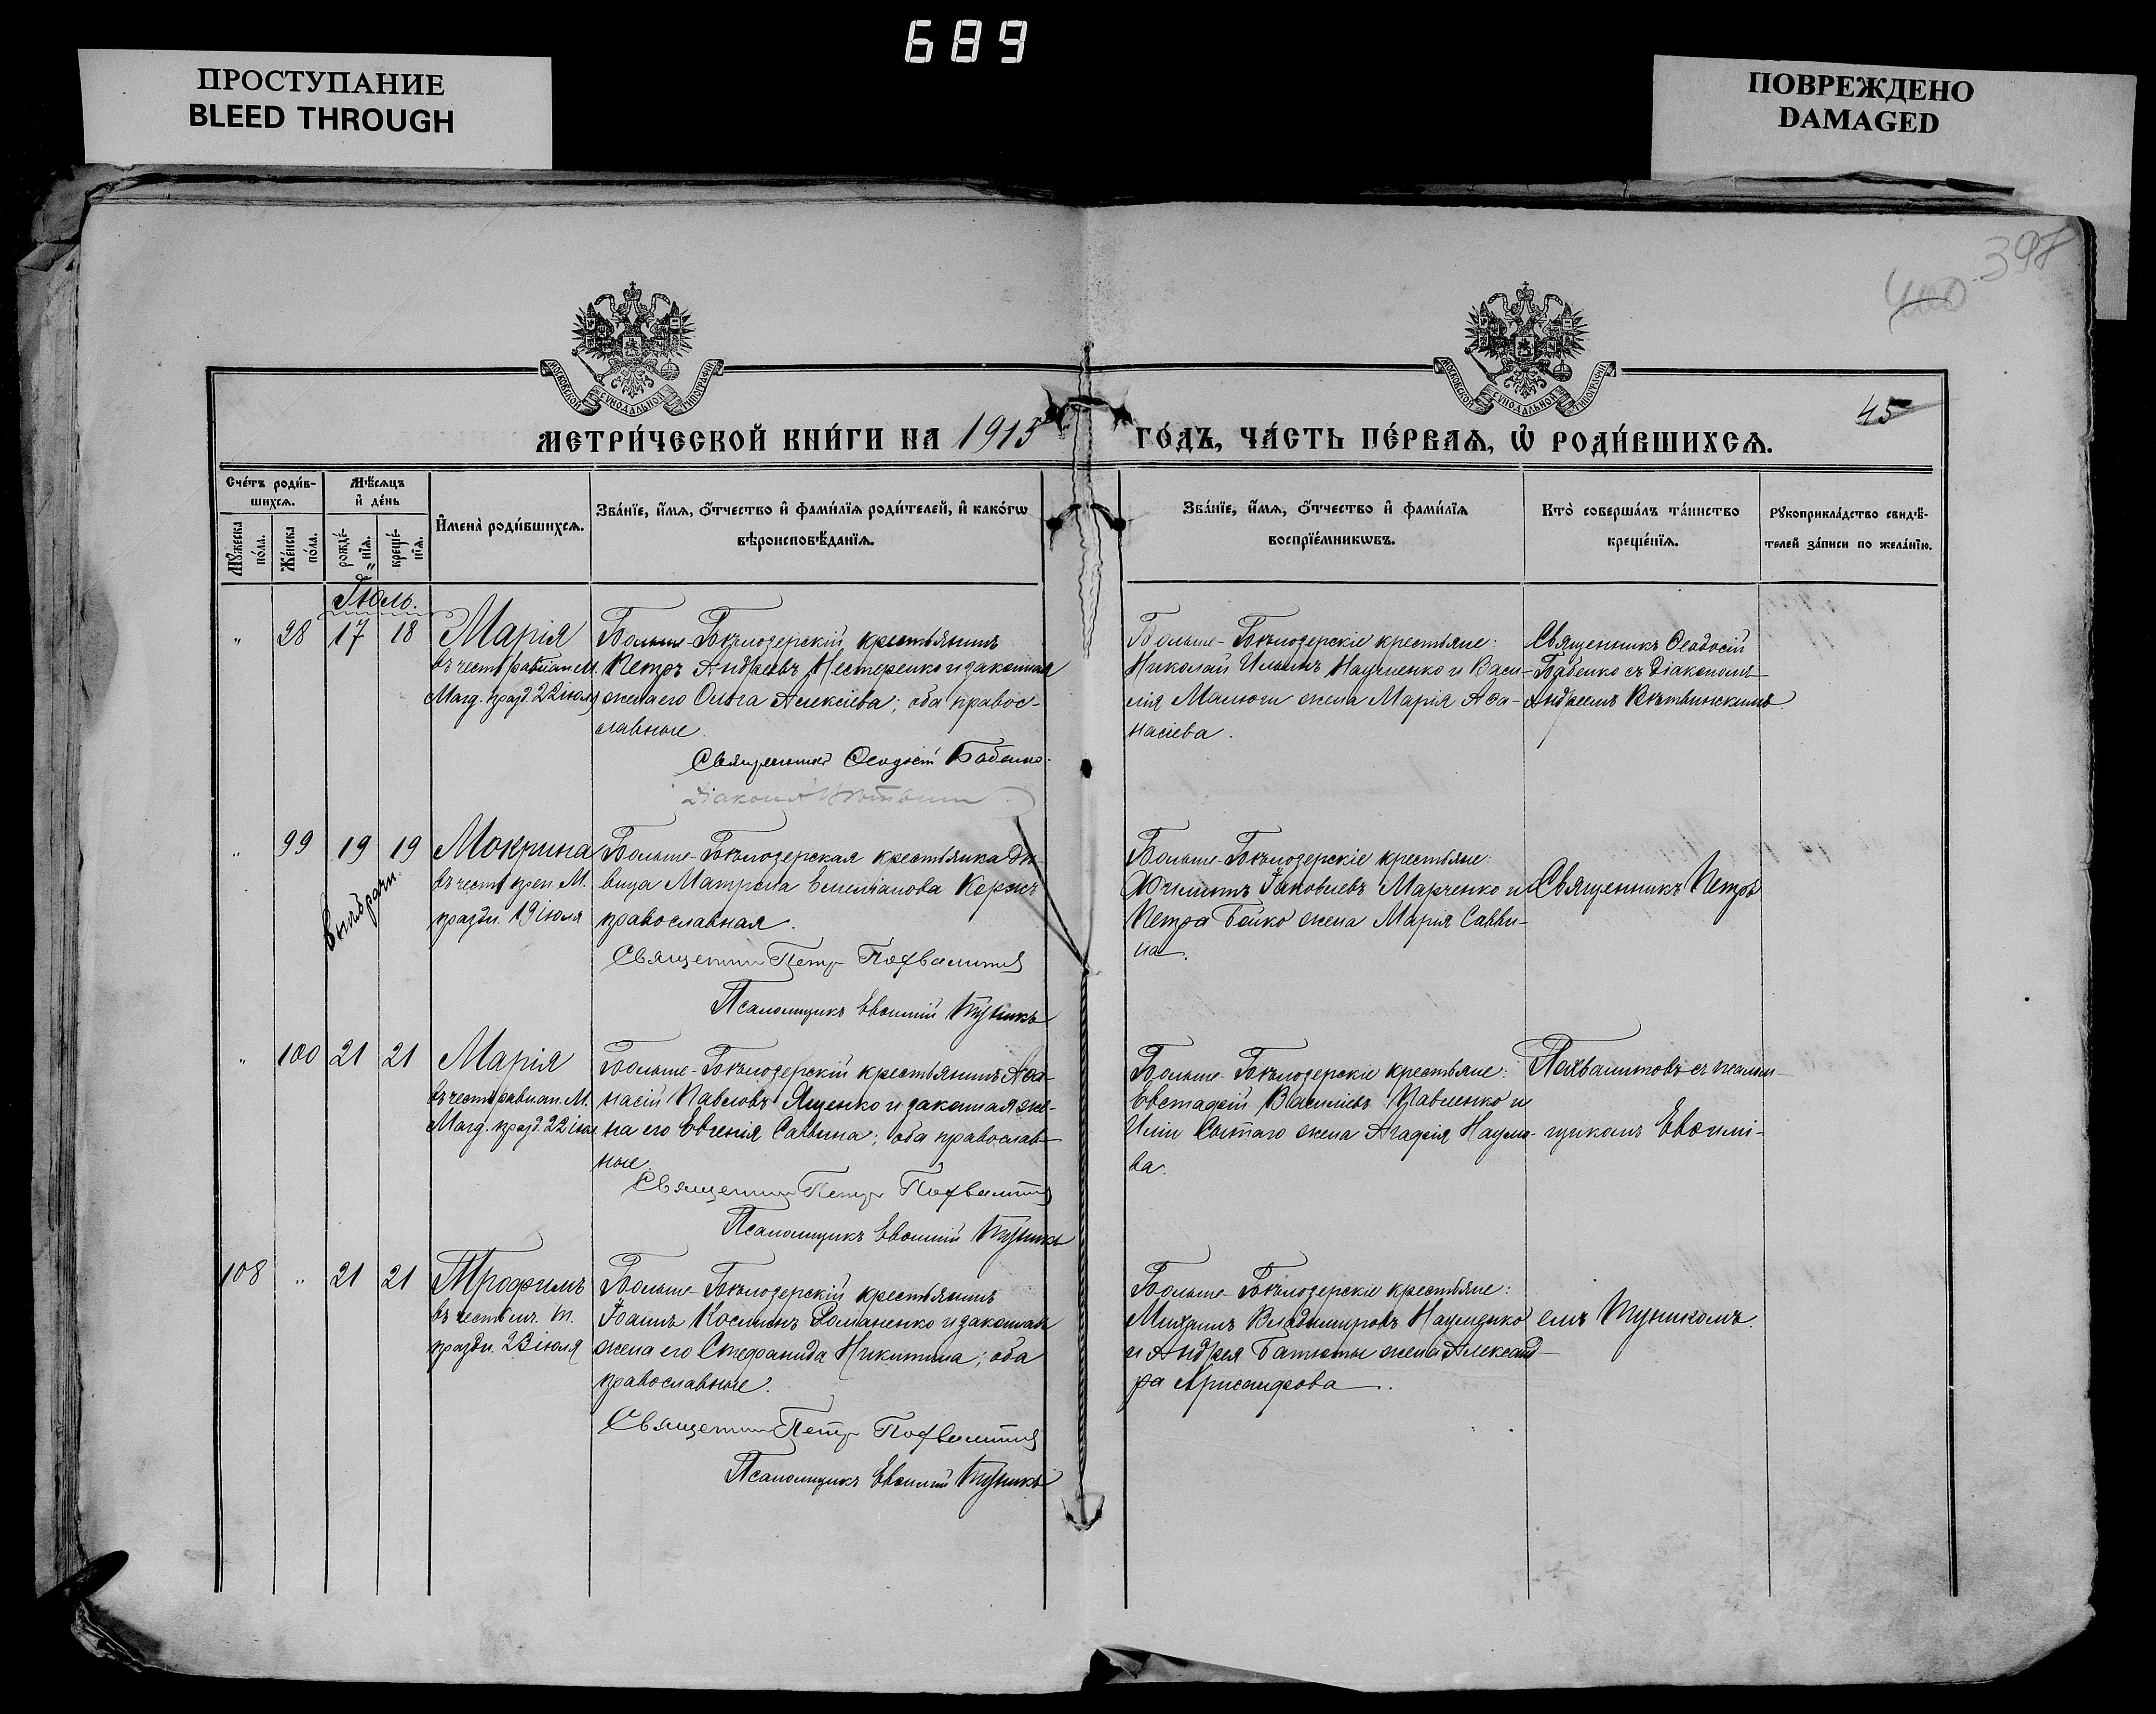 689
ПРОСТУПАНИЕ
BLEED THROUGH
ПОВРЕЖДЕНО
DAMAGED
400 397
МОСКОВСКОЙ СѴНОДАЛЬНОЙ ТИПОГРАФІИ
МОСКОВСКОЙ СѴНОДАЛЬНОЙ ТИПОГРАФІИ
45
МЕТРИ́ЧЕСКОЙ КНИ́ГИ НА 1913 ГО́ДЪ, ЧА́СТЬ ПЕ́РВАѦ, Ѽ РОДИ́ВШИХСѦ.
Сче́тъ роди́в-
шихсѧ.
Мѣ́сѧцъ
и҆ де́нь
Мꙋ́жеска по́ла.
Же́нска по́ла.
рожде́-нїѧ.
креще́-нїѧ.
И҆мена̀ роди́вшихсѧ.
Зва́нїе, и҆́мѧ, ѻ҆́тчество и҆ фами́лїѧ роди́телей, и҆ како́гѡ
вѣроисповѣ́данїѧ.
Зва́нїе, и҆́мѧ, ѻ҆́тчество и҆ фами́лїѧ
воспрїе́мникѡвъ.
Кто̀ соверша́лъ та́инство
креще́нїѧ.
Рꙋкоприкла́дство свидѣ́-
телей за́писи по жела́нїю.
Іюль.
" 28 17 18 Марія
въ честь равноап. М.
Магд. празд. 22 іюля
Больше-Бѣлозерскій крестьянинъ
Петръ Андреевъ Нестеренко и законная
жена его Ольга Алексіева; оба правос-
славные.
Священникъ Ѳеодосій Бабенко.
Діаконъ
Больше-Бѣлозерскіе крестьяне:
Николай Ильинъ Науменко и Васи-
лія Малюги жена Марія Аѳа-
насіева.
Священникъ Ѳеодосій
Бабенко съ Діакономъ
Андреемъ Вѣтвинскимъ.
" 99 19 19 Мокрина
въ честь преп. М.
праздн. 19 іюля
внѣбрачн.
Больше-Бѣлозерская крестьянка дѣ-
вица Матрона Емеліанова Коржъ
православная.
Священникъ Петръ Похвалитовъ
Псаломщикъ Евѳимій Тупикъ
Больше-Бѣлозерскіе крестьяне:
Филиппъ Іаковлевъ Марченко и
Петра Бойко жена Марія Савви-
на.
Священникъ Петръ
" 100 21 21 Марія
въ честь равноап. М.
Магд. празд. 22 іюля
Больше-Бѣлозерскій крестьянинъ Аѳа-
насій Павловъ Ященко и законная же-
на его Евгенія Саввина; оба православ-
ные.
Священникъ Петръ Похвалитовъ
Псаломщикъ Евѳимій Тупикъ
Больше-Бѣлозерскіе крестьяне:
Евстафій Василіевъ Павленко и
Иліи Сытаго жена Агафія Наумо-
ва.
Похвалитовъ съ псалом-
щикомъ Евѳимі-
108 " 21 21 Трофимъ
въ честь муч. Т.
праздн. 23 іюля
Больше-Бѣлозерскій крестьянинъ
Іоаннъ Косминъ Романенко и законная
жена его Стефанида Никитина; оба
православные.
Священникъ Петръ Похвалитовъ
Псаломщикъ Евѳимій Тупикъ
Больше-Бѣлозерскіе крестьяне:
Михаилъ Владимировъ Науменко
и Андрея Батюты жена Александ-
ра Хрисанфова.
емъ Тупикомъ.